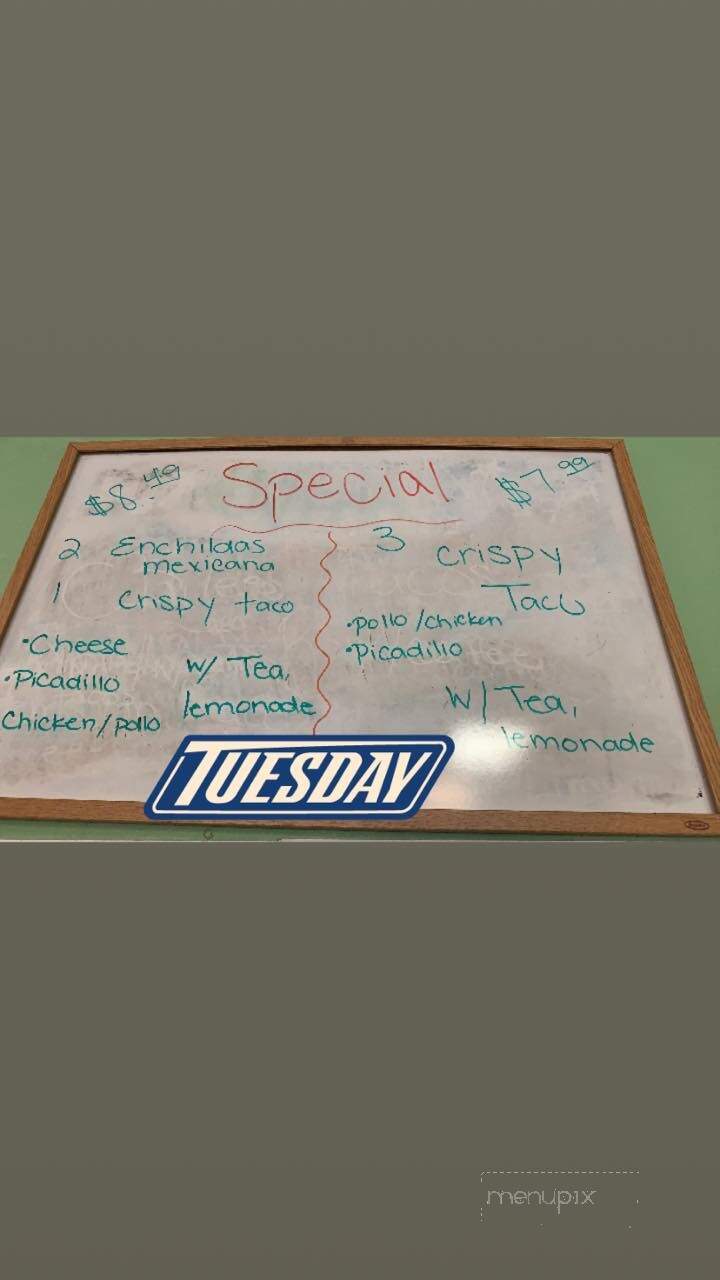 Special
$8.49
2 Enchildas
mexicana
1 crispy taco
•Cheese
•Picadillo
Chicken/pollo
w/ Tea,
lemonade
$7.99
3 crispy
Taco
•pollo/chicken
•Picadillo
w/ Tea,
lemonade
TUESDAY
menupix